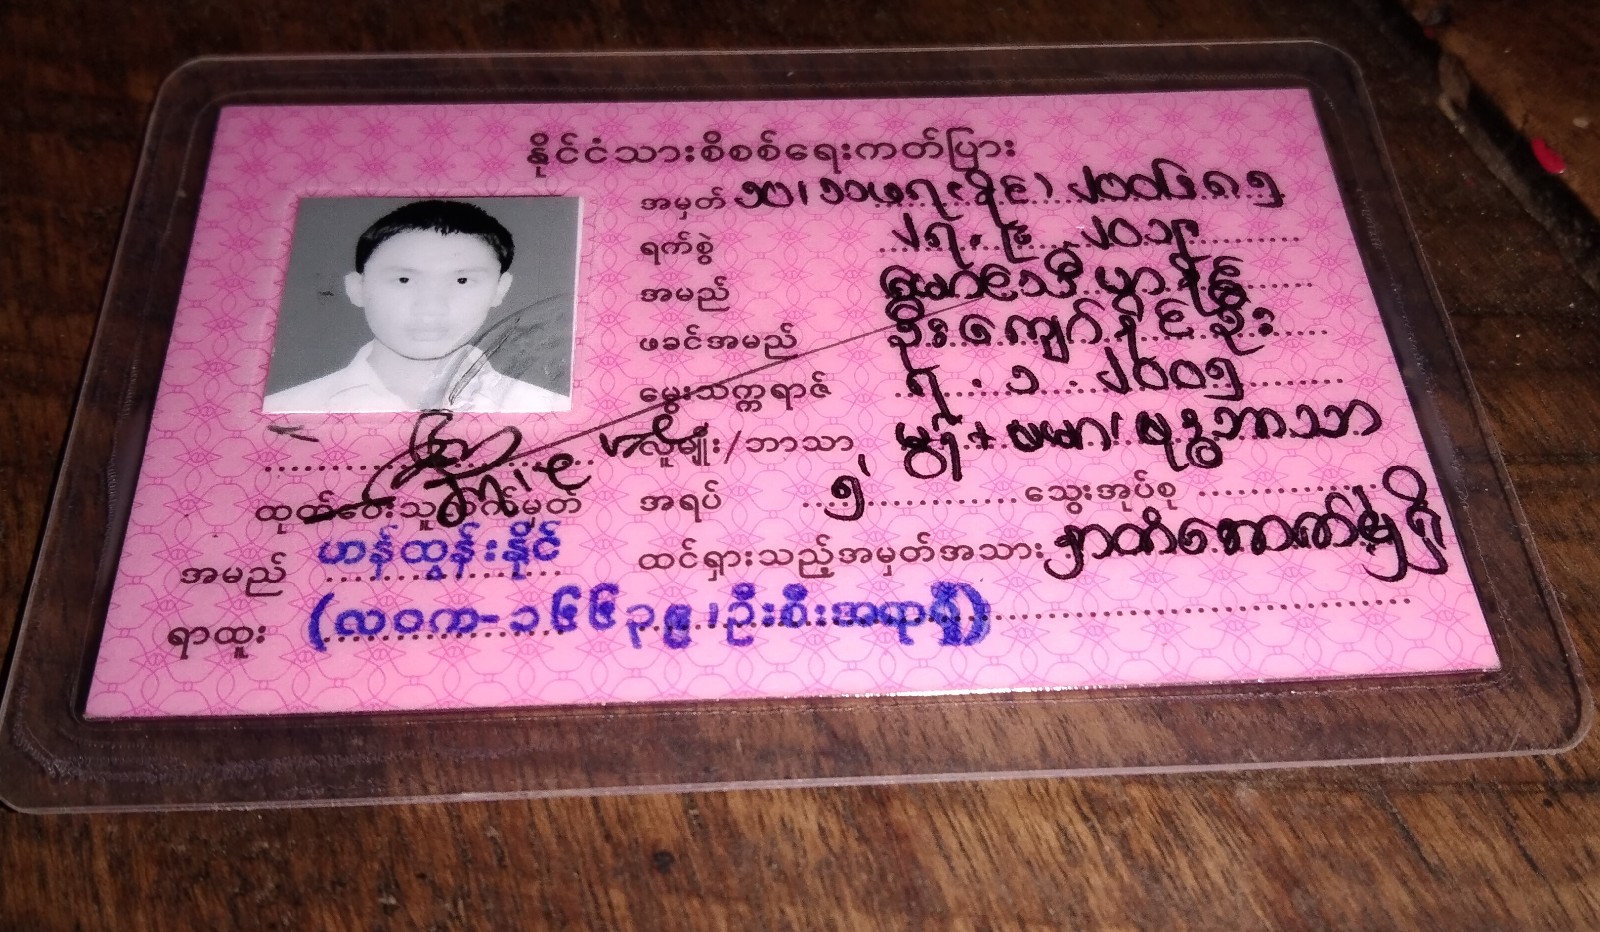 နိုင်ငံသားစိစစ်ရေးကတ်ပြား
အမှတ်
ရက်စွဲ ၂၇.၆.၂၀၁၉
အမည်
ဖခင်အမည် ဦးကျော်နိုင်ဦး
မွေးသက္ကရာဇ် ၇.၁.၂၀၀၅
လူမျိုး/ဘာသာ မွန်+ဗမာ/ဗုဒ္ဓဘာသာ
အရပ် ၅' သွေးအုပ်စု
ထင်ရှားသည့်အမှတ်အသား
ထုတ်ပေးသူလက်မှတ်
အမည် ဟန်ထွန်းနိုင်
ရာထူး (လဝက-၁၆၆၃၉၊ဦးစီးအရာရှိ)